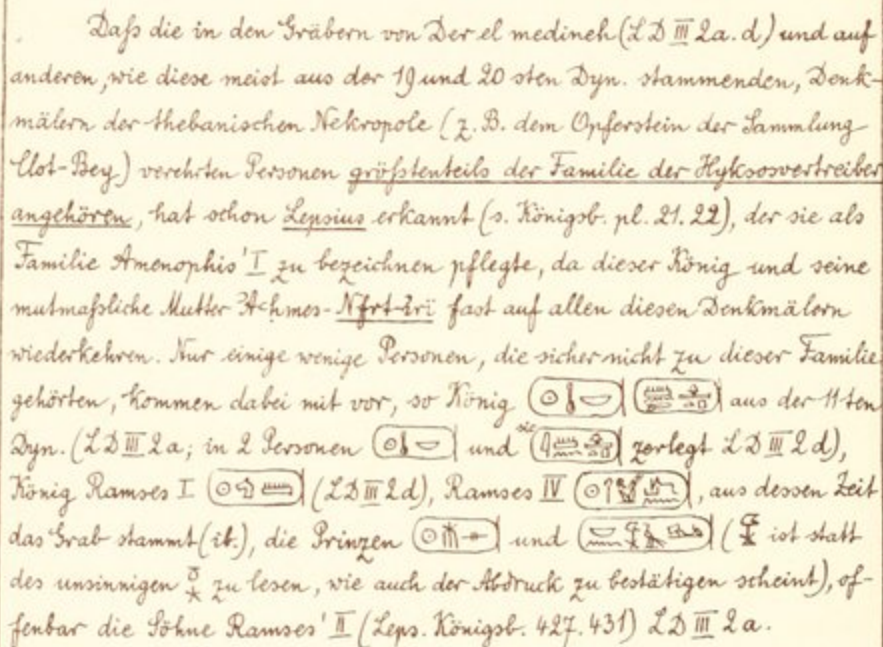 Daß die in den Gräbern von Der el medineh (LD III 2a.d) und auf
anderen, wie diese meist aus der 19 und 20 sten Dyn. stammenden, Denk-
mälern der thebanischen Nekropole (z.B. dem Opferstein der Sammlung
Clot-Bey) verehrten Personen größtenteils der Familie der Hyksosvertreiber
angehören, hat schon Lepsius erkannt (s. Königsb. pl. 21. 22), der sie als
Familie Amenophis' I zu bezeichnen pflegte, da dieser König und seine
mutmaßliche Mutter fast auf allen diesen Denkmälern
wiederkehren. Nur einige wenige Personen, die sicher nicht zu dieser Familie
gehörten, kommen dabei mit vor, so König aus der 11ten
Dyn. (LD III 2a; in 2 Personen und sie zerlegt LD III 2d),
König Ramses I (LD III 2d), Ramses IV , aus dessen Zeit
das Grab stammt (ib.), die Prinzen und ( ist statt
des unsinnigen zu lesen, wie auch der Abdruck zu bestätigen scheint), of-
fenbar die Söhne Ramses' II (Leps. Königsb. 427. 431) LD III 2a.